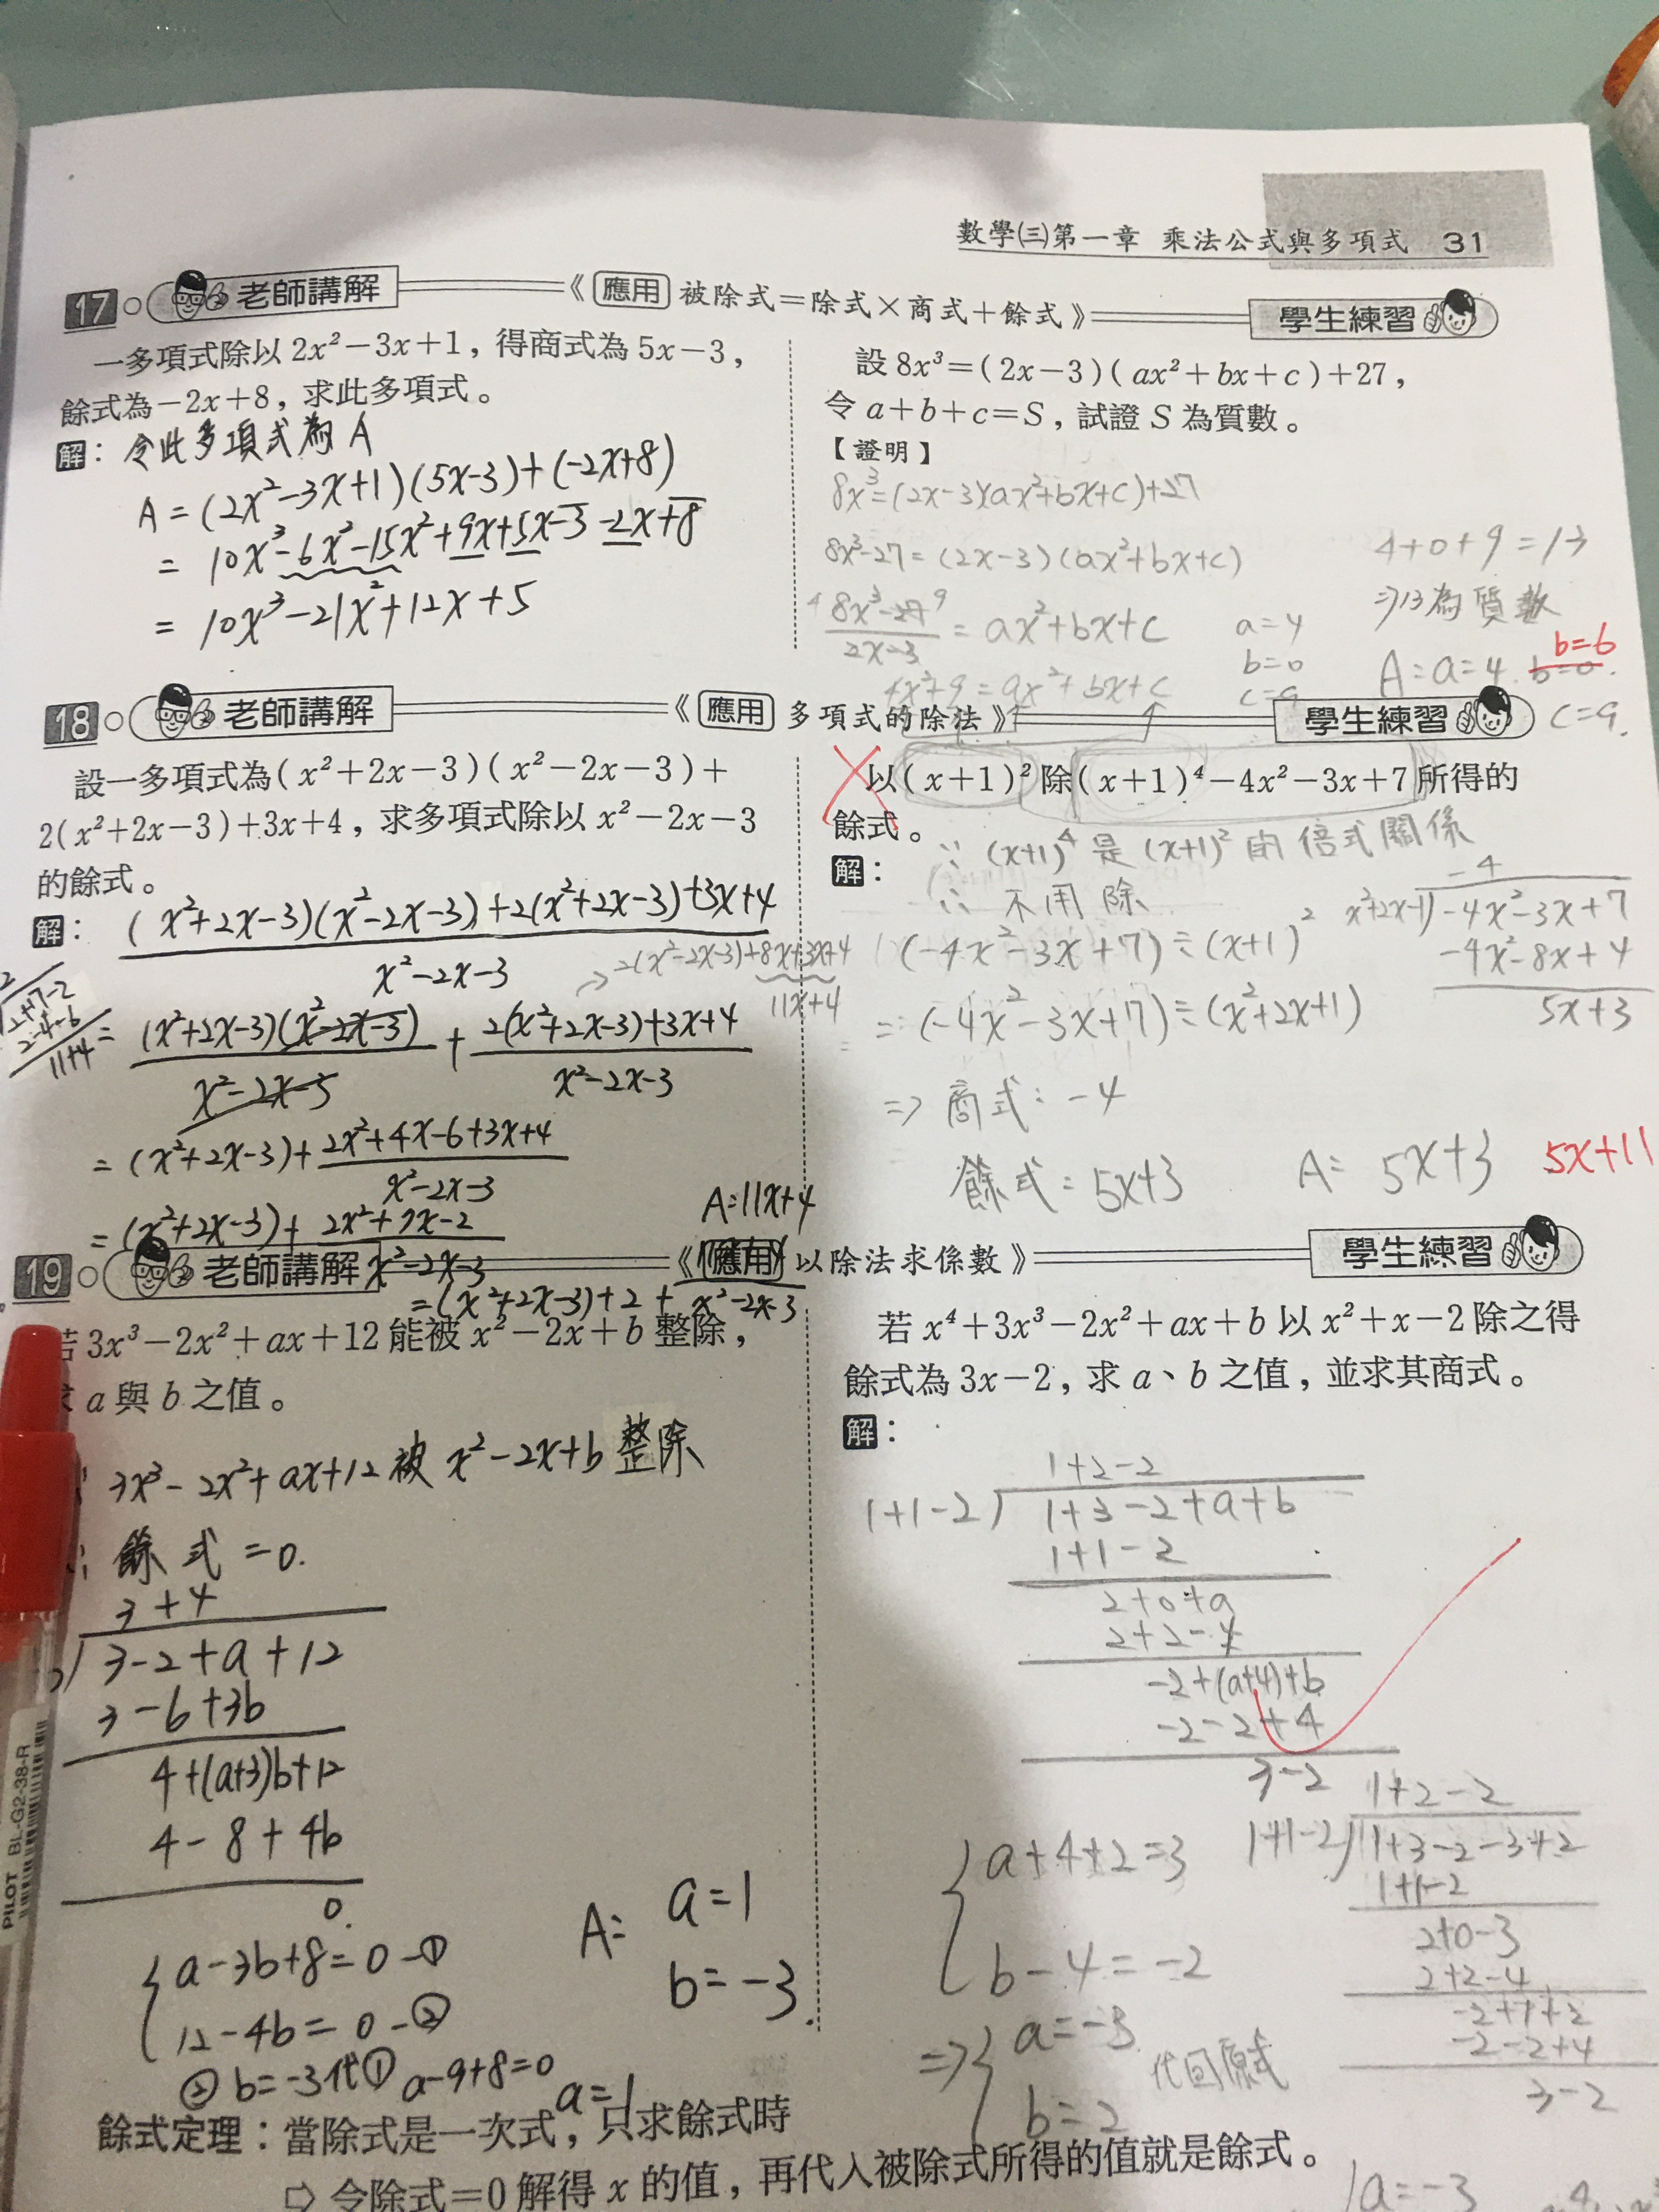 數學㈢第一章 乘法公式與多項式 31
17 老師講解 《應用 被除式＝除式×商式＋餘式》 學生練習
一多項式除以 2x²－3x＋1，得商式為 5x－3，
餘式為－2x＋8，求此多項式。
解：令此多項式為 A
A = (2x²-3x+1)(5x-3)+(-2x+8)
= 10x³-6x²-15x²+9x+5x-3-2x+8
= 10x³-21x²+12x+5
設 8x³＝(2x－3)(ax²＋bx＋c)＋27，
令 a＋b＋c＝S，試證 S 為質數。
【證明】
8x³=(2x-3)(ax²+bx+c)+27
8x³-27=(2x-3)(ax²+bx+c)
4 8x³-27 9
2x-3
= ax²+bx+c
4x²+9=ax²+bx+c
a=4
b=0
c=9
4+0+9=13
⇒13為質數
b=6
A:a=4. b=0.
c=9.
18 老師講解 《應用 多項式的除法》 學生練習
設一多項式為(x²＋2x－3)(x²－2x－3)＋
2(x²＋2x－3)＋3x＋4，求多項式除以 x²－2x－3
的餘式。
解：
(x²+2x-3)(x²-2x-3)+2(x²+2x-3)+3x+4
x²-2x-3
→2(x²-2x-3)+8x+3x+4
11x+4
2
2+7-2
2-4-6
11+4
= (x²+2x-3)(x²-2x-3) + 2(x²+2x-3)+3x+4
x²-2x-3 x²-2x-3
=(x²+2x-3)+ 2x²+4x-6+3x+4
x²-2x-3
=(x²+2x-3)+ 2x²+7x-2
x²-2x-3
=(x²+2x-3)+2+
x²-2x-3
A:11x+4
以(x＋1)²除(x＋1)⁴－4x²－3x＋7所得的
餘式。
解：∵(x+1)⁴是(x+1)²的倍式關係
∴不用除
(-4x²-3x+7)÷(x+1)²
=(-4x²-3x+7)÷(x²+2x+1)
⇒商式:-4
餘式:5x+3
A: 5x+3
5x+11
-4
x²+2x+1) -4x²-3x+7
-4x²-8x+4
5x+3
19 老師講解 《應用 以除法求係數》 學生練習
若 3x³－2x²＋ax＋12 能被 x²－2x＋b 整除，
求 a 與 b 之值。
3x³-2x²+ax+12被 x²-2x+b 整除
餘式=0.
3+4
) 3-2+a+12
3-6+3b
4+(a+3)b+12
4-8+4b
0.
a-3b+8=0-①
12-4b=0-②
②b=-3代① a-9+8=0
a=1
A: a=1
b=-3.
若 x⁴＋3x³－2x²＋ax＋b 以 x²＋x－2 除之得
餘式為 3x－2，求 a、b 之值，並求其商式。
解：
1+2-2
1+1-2) 1+3-2+a+b
1+1-2
2+0+a
2+2-4
-2+(a+4)+b
-2-2+4
3-2
a+4+2=3
b-4=-2
⇒ a=-3
b=2
代回原式
1+2-2
1+1-2) 1+3-2-3+2
1+1-2
2+0-3
2+2-4
-2+1+2
-2-2+4
3-2
餘式定理：當除式是一次式，只求餘式時
⇨ 令除式＝0 解得 x 的值，再代入被除式所得的值就是餘式。
a=-3
PILOT BL-G2-38-R